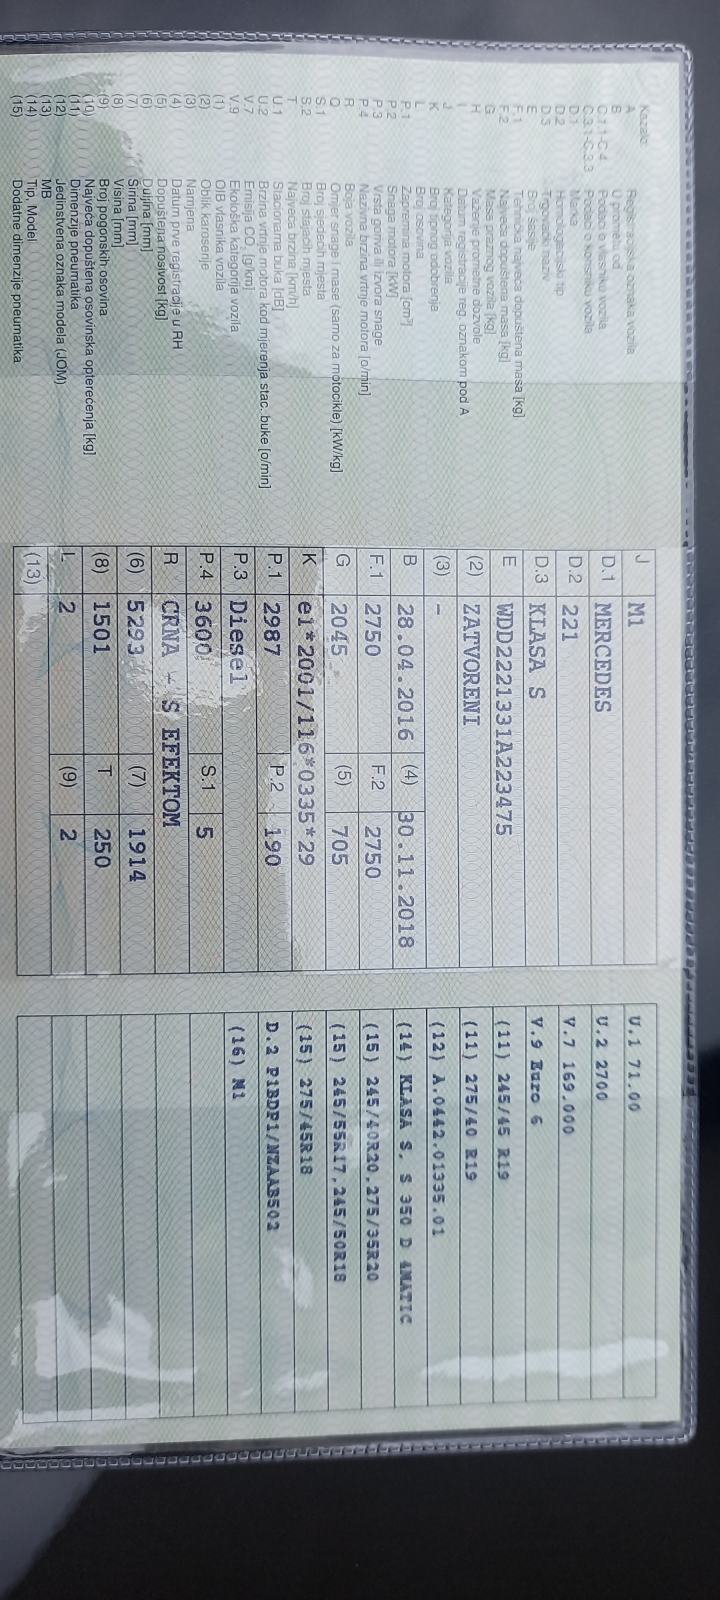 Kazalo:
A Registracijska oznaka vozila
B U prometu od
C.1.1-C.4 Podaci o vlasniku vozila
C.3.1-C.3.3 Podaci o korisniku vozila
D.1 Marka
D.2 Homologacijski tip
D.3 Trgovački naziv
E Broj šasije
F.1 Tehnički najveća dopuštena masa [kg]
F.2 Najveća dopuštena masa [kg]
G Masa praznog vozila [kg]
H Važenje prometne dozvole
I Datum registracije reg. oznakom pod A
J Kategorija vozila
K Broj tipnog odobrenja
L Broj osovina
P.1 Zapremina motora [cm³]
P.2 Snaga motora [kW]
P.3 Vrsta goriva ili izvora snage
P.4 Nazivna brzina vrtnje motora [o/min]
R Boja vozila
Q Omjer snage i mase (samo za motocikle) [kW/kg]
S.1 Broj sjedećih mjesta
S.2 Broj stajaćih mjesta
T Najveća brzina [km/h]
U.1 Stacionarna buka [dB]
U.2 Brzina vrtnje motora kod mjerenja stac. buke [o/min]
V.7 Emisija CO₂ [g/km]
V.9 Ekološka kategorija vozila
(1) OIB vlasnika vozila
(2) Oblik karoserije
(3) Namjena
(4) Datum prve registracije u RH
(5) Dopuštena nosivost [kg]
(6) Duljina [mm]
(7) Širina [mm]
(8) Visina [mm]
(9) Broj pogonskih osovina
(10) Najveća dopuštena osovinska opterećenja [kg]
(11) Dimenzije pneumatika
(12) Jedinstvena oznaka modela (JOM)
(13) MB
(14) Tip, Model
(15) Dodatne dimenzije pneumatika
J M1
D.1 MERCEDES
D.2 221
D.3 KLASA S
E WDD2221331A223475
(2) ZATVORENI
(3) -
B 28.04.2016 (4) 30.11.2018
F.1 2750 F.2 2750
G 2045 (5) 705
K e1*2001/116*0335*29
P.1 2987 P.2 190
P.3 Diesel
P.4 3600 S.1 5
R CRNA + S EFEKTOM
(6) 5293 (7) 1914
(8) 1501 T 250
L 2 (9) 2
(13)
U.1 71.00
U.2 2700
V.7 169.000
V.9 Euro 6
(11) 245/45 R19
(11) 275/40 R19
(12) A.0442.01335.01
(14) KLASA S, S 350 D 4MATIC
(15) 245/40R20,275/35R20
(15) 245/55R17,245/50R18
(15) 275/45R18
D.2 P1BDP1/NZAAB502
(16) M1